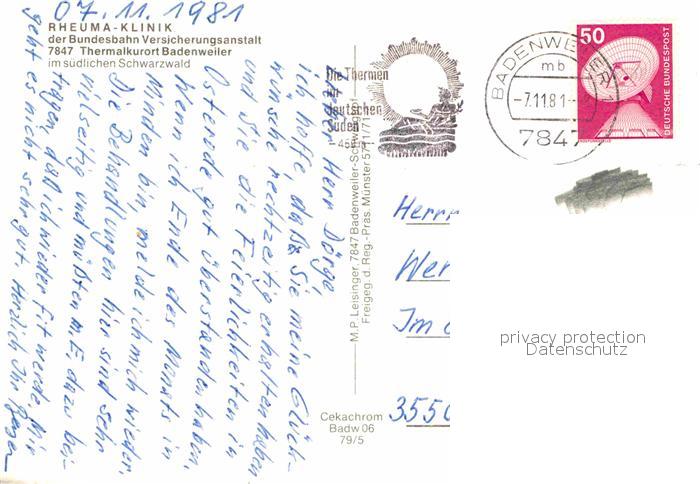 07.11.1981
RHEUMA-KLINIK
der Bundesbahn Versicherungsanstalt
7847 Thermalkurort Badenweiler
im südlichen Schwarzwald
Herr Dörge,
ich hoffe, daß Sie meine Glück-
wünsche rechtzeitig erhalten haben
und Sie die Feierlichkeiten in
Ostende gut überstanden haben.
Wenn ich Ende des Monats in
Minden bin, melde ich mich wieder.
Die Behandlungen hier sind sehr
vielseitig und müßten m.E. dazu bei-
tragen, daß ich wieder fit werde. Mir
geht es nicht sehr gut. Herzlich Ihr
M.P. Leisinger, 7847 Badenweiler-Schweighof
Freigeg. d. Reg.-Präs. Münster
Cekachrom
Badw 06
79/5
Die Thermen
im
deutschen
Süden
BADENWEILER
mb
-7.11.81-
7847
50
DEUTSCHE BUNDESPOST
Herrn
Wer
Im
3550
privacy protection
Datenschutz